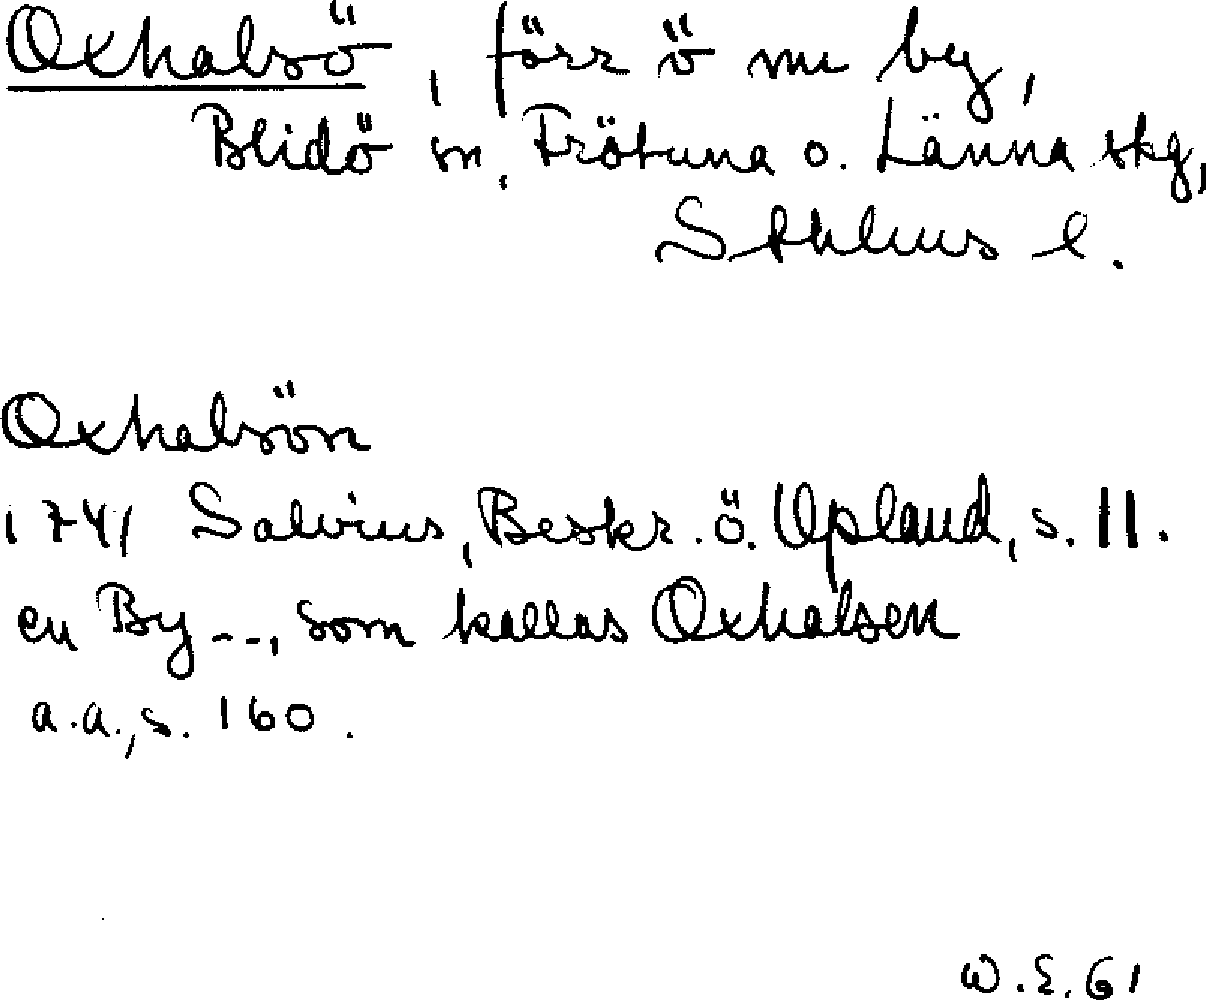 Oxhalsö, förr ö nu by,
Blidö sn, Frötuna o. Länna skg,
Sthlms l.
Oxhalsön
1741 Salvius, Beskr. ö. Upland, s. 11.
en By --, som kallas Oxhalsen
a.a., s. 160.
W.E. 61